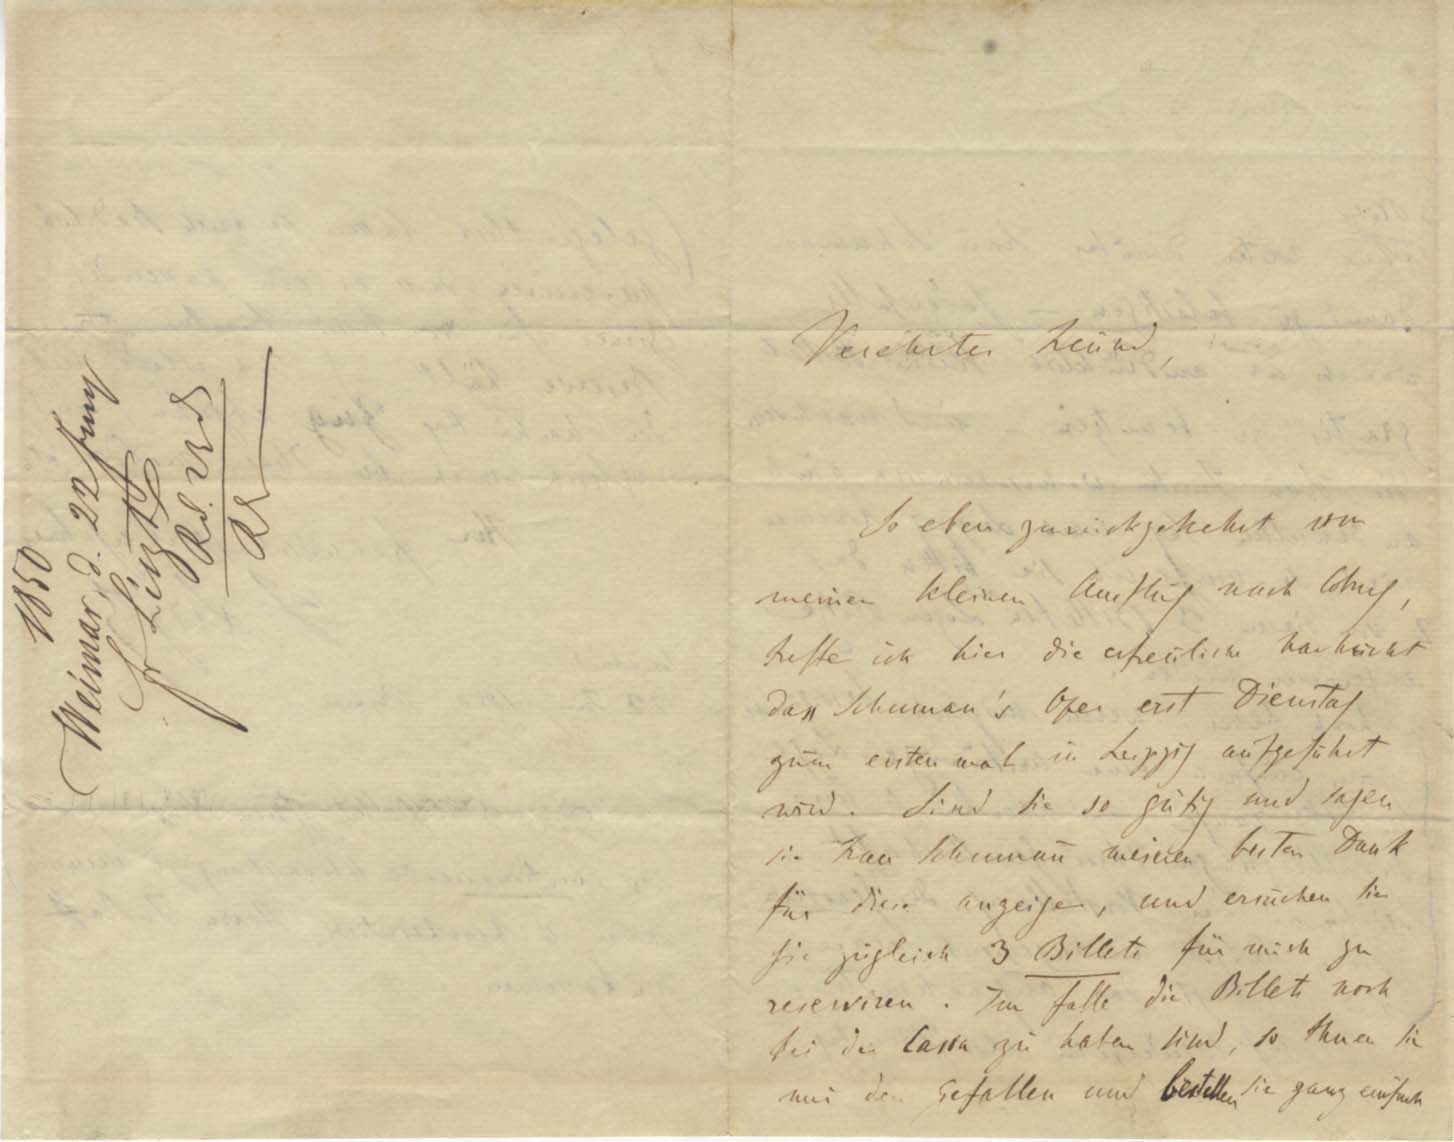 1850
Weimar, d. 22 Juny
Liszt
Verehrter Freund,
So eben zurückgekehrt von
meinen kleinen Ausflug nach Coburg,
treffe ich hier die erfreuliche Nachricht
dass Schuman's Oper erst Dienstag
zum erstenmal in Leipzig aufgeführt
wird. Sind sie so gütig und sagen
sie Frau Schumañ meinen besten Dank
für diese anzeige, und ersuchen sie
sie zugleich 3 Billets für mich zu
reserviren. Im falle die Billets noch
bei der Cassa zu haben sind, so thuen sie
mir den gefallen und bestellen sie ganz einfach